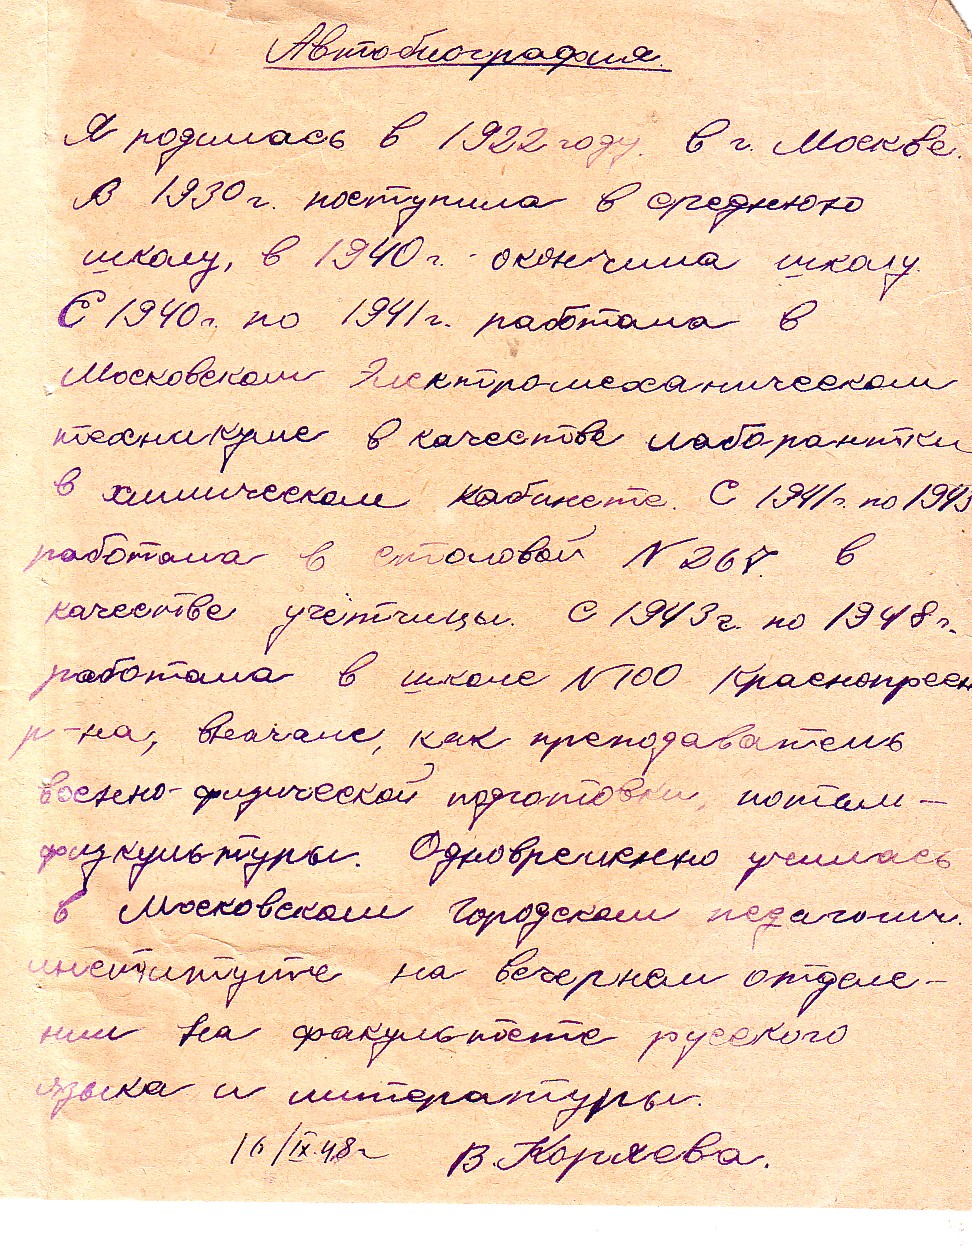 Автобиография.
Я родилась в 1922 году. в г. Москве.
В 1930 г. поступила в среднюю
школу, в 1940 г. окончила школу.
С 1940 г. по 1941 г. работала в
Московском Электромеханическом
техникуме в качестве лаборантки
в химическом кабинете. С 1941 г. по 1943
работала в столовой N 267. в
качестве учётчицы. С 1943 г. по 1948 г.
работала в школе N 100 Краснопресн
р-на, вначале, как преподаватель
военно-физической подготовки, потом –
физкультуры. Одновременно училась
в Московском Городском педагогич.
институте на вечернем отделе-
нии на факультете русского
языка и литературы.
16/IX.48 г В. Коряева.